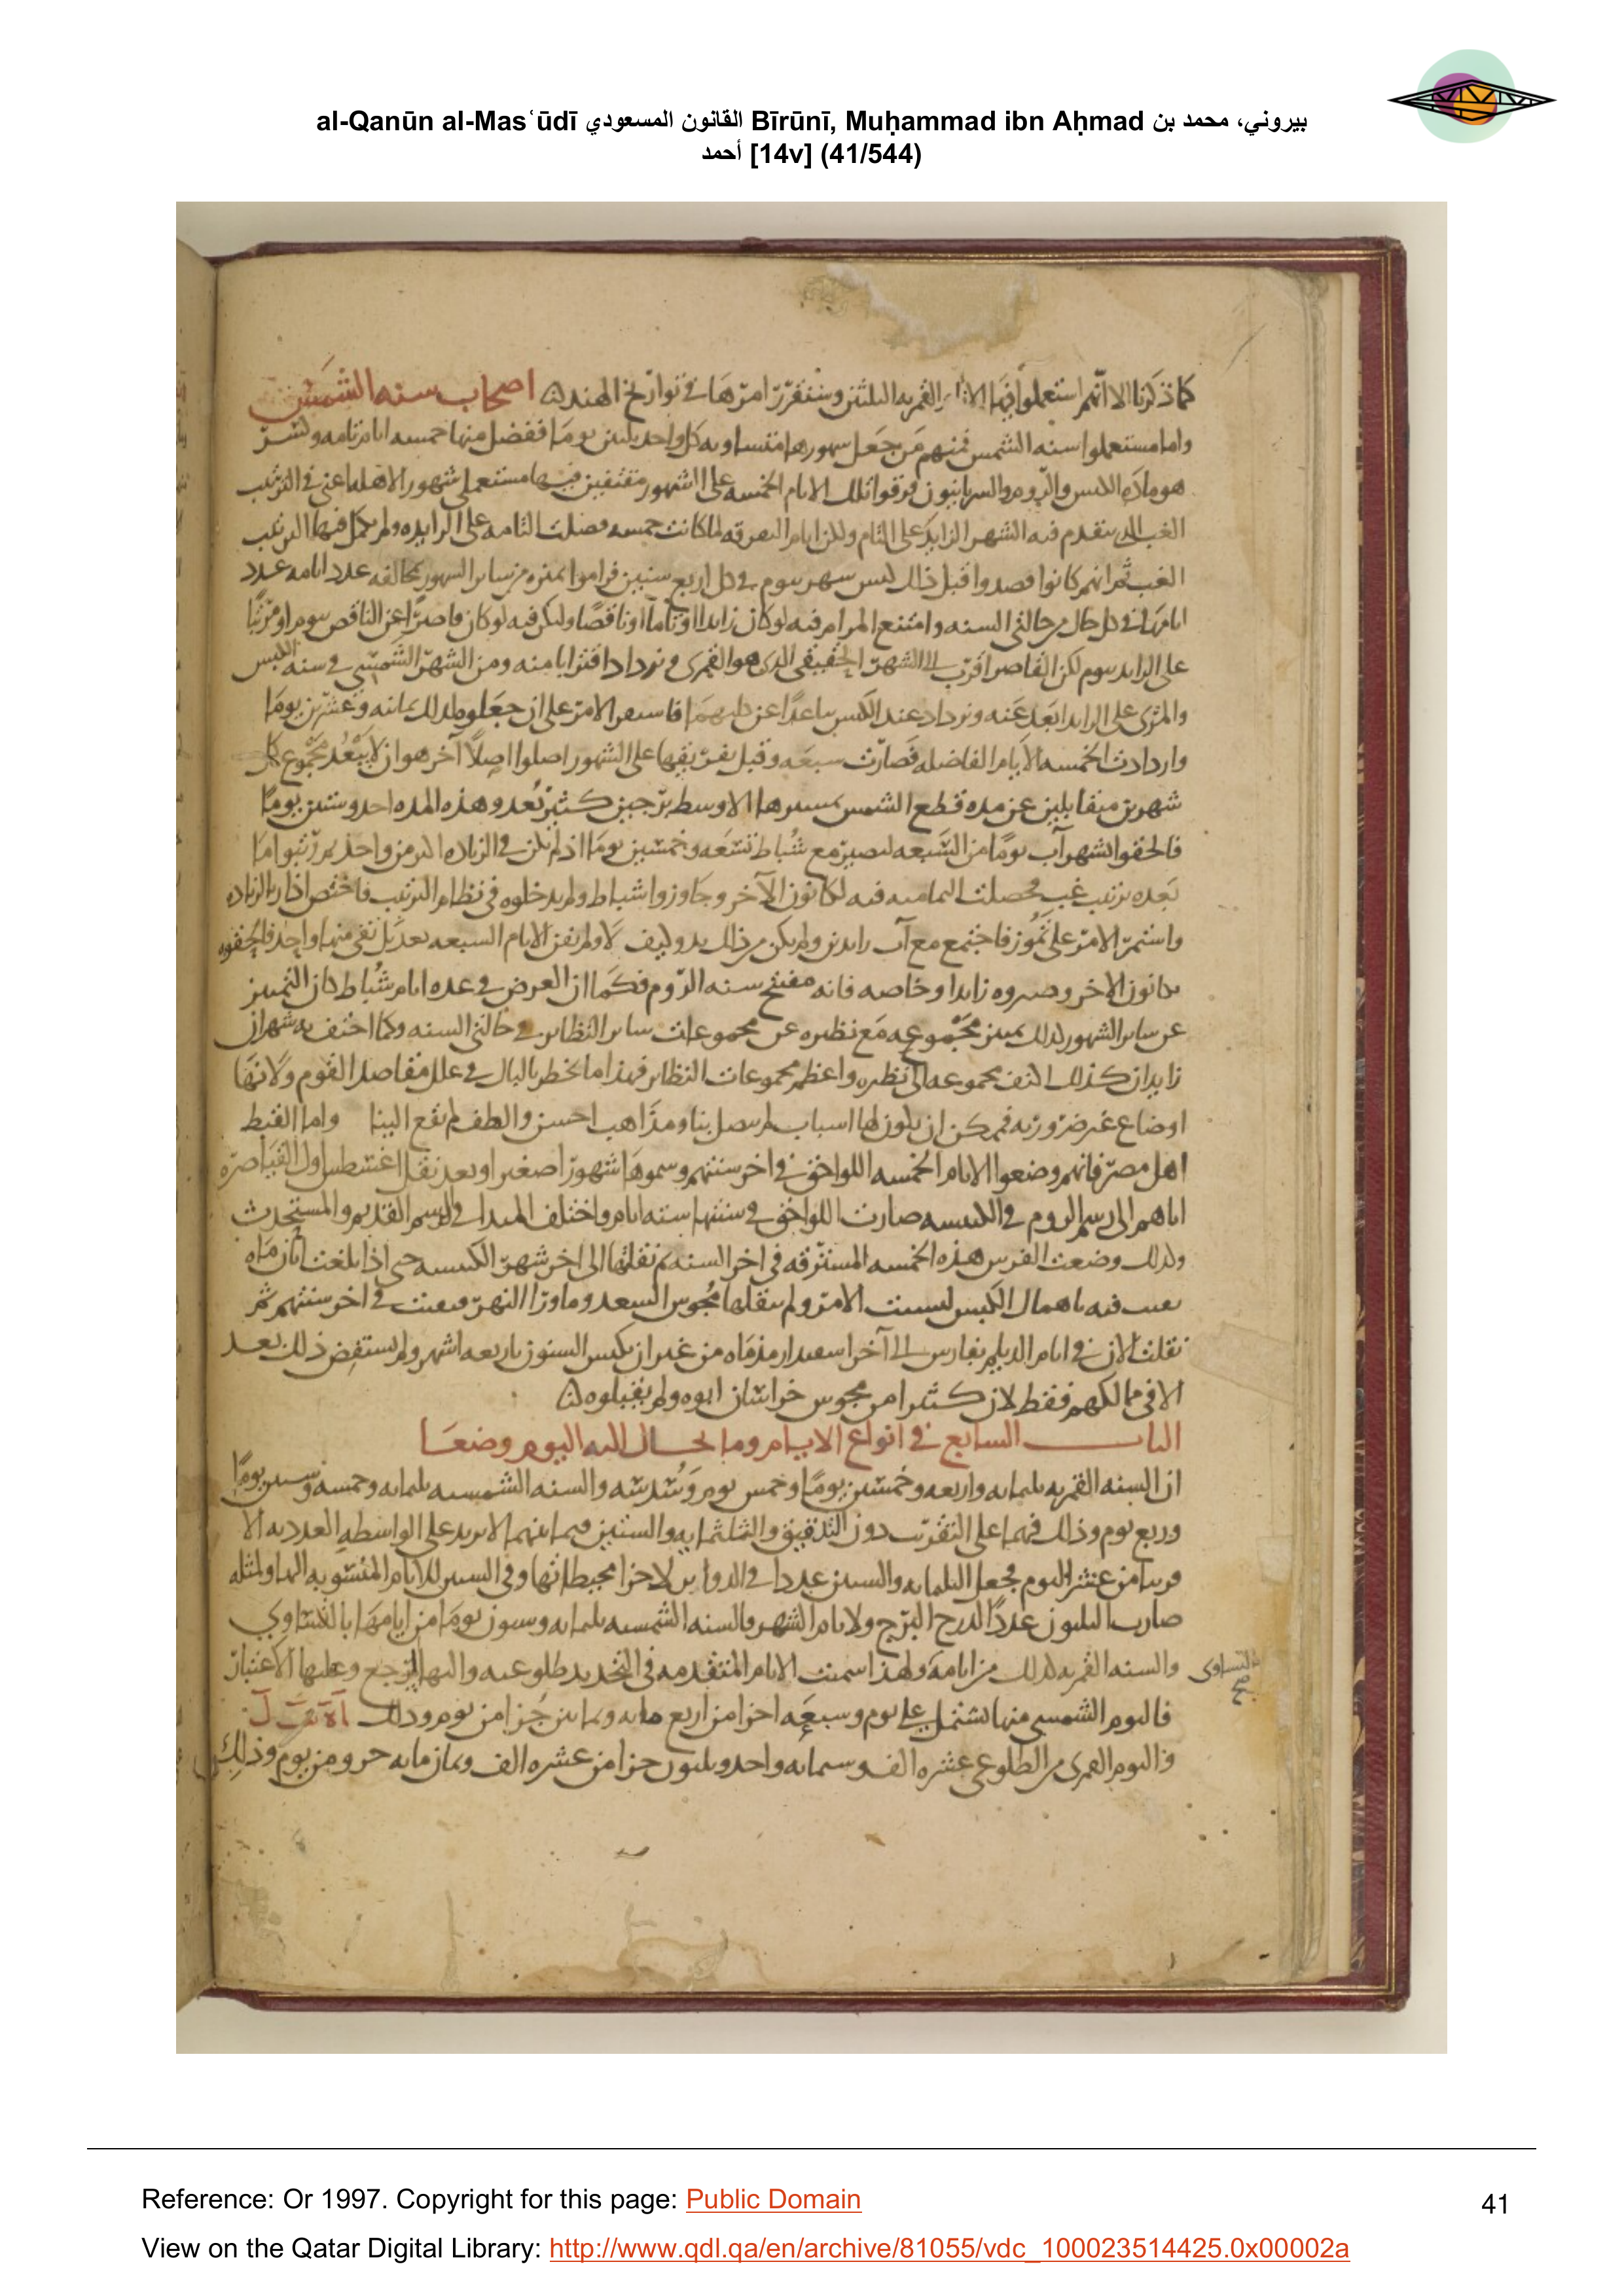 al-Qanūn al-Masʿūdī القانون المسعودي Bīrūnī, Muḥammad ibn Aḥmad بيروني، محمد بن
أحمد [14v] (41/544)
كما ذكرنا الا انهم استعملوا فيها القمريه الثلثين وسنقرر امرها في تواريخ الهند اصحاب سنه الشمس
واما مستعملوا سنه الشمس فمنهم من جعل سهورها متساويه كل واحد ثلثين يوما ففضل منها خمسه ايام تامه وكسر
والروم والسريانيون فرقوا تلك الايام الخمسه على الشهور مستعملى شهور الاهله اعنى في الترتيب
الغب الذى يتقدم فيه الشهر الزايد على التام ولكن ايام لما كانت خمسه فضلت التامه على الزايده ولم يكمل فيها الترتيب
الغب ثم انهم كانوا قصدوا قبل ذلك سهر بيوم في كل اربع سنين فراموا تميزه من ساير السهور بمخالفه عدد ايامه عدد
ايامها في كل حال من حالتى السنه وامتنع المرام فيه لو كان زايدا او تاما او ناقصا ولكن فيه لو كان قاصرا عن الناقص بيوم او مربيا
على الزايد بيوم لكن القاصر اقرب الى الشهر الحقيقى الذى هو القمرى و يزداد اقترابا منه ومن الشهر الشمسى في سنه الكبس
والمربى على الزايد ابعد عنه ويزداد عند الكبس تباعدا عن كليهما فاستقر الامر على ان جعلوه لذلك ثمانيه وعشرين يوما
وازدادت الخمسه الايام الفاضله فصارت سبعه وقبل تفريقها على الشهور اصلوا اصلا آخر هو ان لا يبعد مجموع كل
شهرين متقابلين عن مده قطع الشمس بمسيرها الاوسط برجين كثير بعد وهذه المده احد وستين يوما
فالحقوا بشهر آب يوما من السبعه ليصير مع شباط تسعه وخمسين يوما اذ لم يكن في الزياده اكثر من واحد ثم رتبوا ما
بعده ترتيب غب فحصلت الثمانيه فيه لكانون الآخر وجاوزوا شباط ولم يدخلوه في نظام الترتيب فاختص اذار بالزياده
واستمر الامر على تموز فاجتمع مع آب زايدين ولم يكن من ذلك بد وكيف لا ولم تفن الايام السبعه بعد بل بقى منها واحد فالحقوه
بكانون الاخر وصيروه زايدا وخاصه فانه مفتتح سنه الروم فكما ان الغرض في عده ايام شباط كان التميز
عن ساير الشهور لذلك تميز مجموعه مع نظيره عن مجموعات ساير النظاير في حالتى السنه وكما احتف به شهران
زايدان كذلك التف بمجموعه الى نظيره واعظم مجموعات النظاير فهذا ما يخطر بالبال في علل مقاصد القوم ولانها
اوضاع غير ضروريه فيمكن ان يكون لها اسباب لم تتصل بنا ومذاهب احسن والطف لم تقع الينا واما القبط
اهل مصر فانهم وضعوا الايام الخمسه اللواحق في اخر سنتهم وسموها شهورا صغيرا وبعد نقل اغشطس اول القياصره
اياهم الى رسم الروم في الكبيسه صارت اللواحق في سنتها سته ايام واختلف المبدا في الرسم القديم والمستحدث
وكذلك وضعت الفرس هذه الخمسه المسترقه في اخر السنه ثم نقلتها الى اخر شهر الكبيسه حتى اذا بلغت ابان ماه
بقيت فيه باهمال الكبس لتسيب الامر ولم ينقلها مجوس السغد وما ورا النهر فبقيت في اخر سنتهم ثم
نقلت الان في ايام الديلم بفارس الى آخر اسفندارمذماه من غير ان يكبس السنون باربعه اشهر ولم يستفض ذلك بعد
الا في ممالكهم فقط لان كثيرا من مجوس خراسان ابوه ولم يقبلوه
الباب السابع في انواع الايام وما يحال اليه اليوم وضعا
ان السنه القمريه ثلثمايه واربعه وخمسين يوما وخمس يوم وسدسه والسنه الشمسيه ثلثمايه وخمسه وستين يوما
وربع يوم وذلك فيهما على التقريب دون التدقيق والثلثمايه والستين فيما بينهما لا يزيد على الواسطه العدديه الا
قريبا من عشر اليوم فجعل الثلثمايه والستين عددا في الدواير لاجزا محيطاتها وفي السنين للايام المنسوبه اليها ولمثله
صارت الثلثون عددا لدرج البرج ولايام الشهر فالسنه الشمسيه ثلثمايه وستون يوما من ايامها بالتساوي
والسنه القمريه كذلك من ايامه ولهذا اسميت الايام المتقدمه في التحديد طلوعيه واليها المرجع وعليها الاعتبار
بالتساوى
صح
فاليوم الشمسى منها يشتمل على يوم وسبعه اجزا من اربع مايه وثمانين جزا من يوم وذلك
واليوم القمرى من الطلوعى عشره الف وستمايه واحد وثلثون جزا من عشره الف وثمان مايه جزو من يوم وذلك
Reference: Or 1997. Copyright for this page: Public Domain
41
View on the Qatar Digital Library: http://www.qdl.qa/en/archive/81055/vdc_100023514425.0x00002a